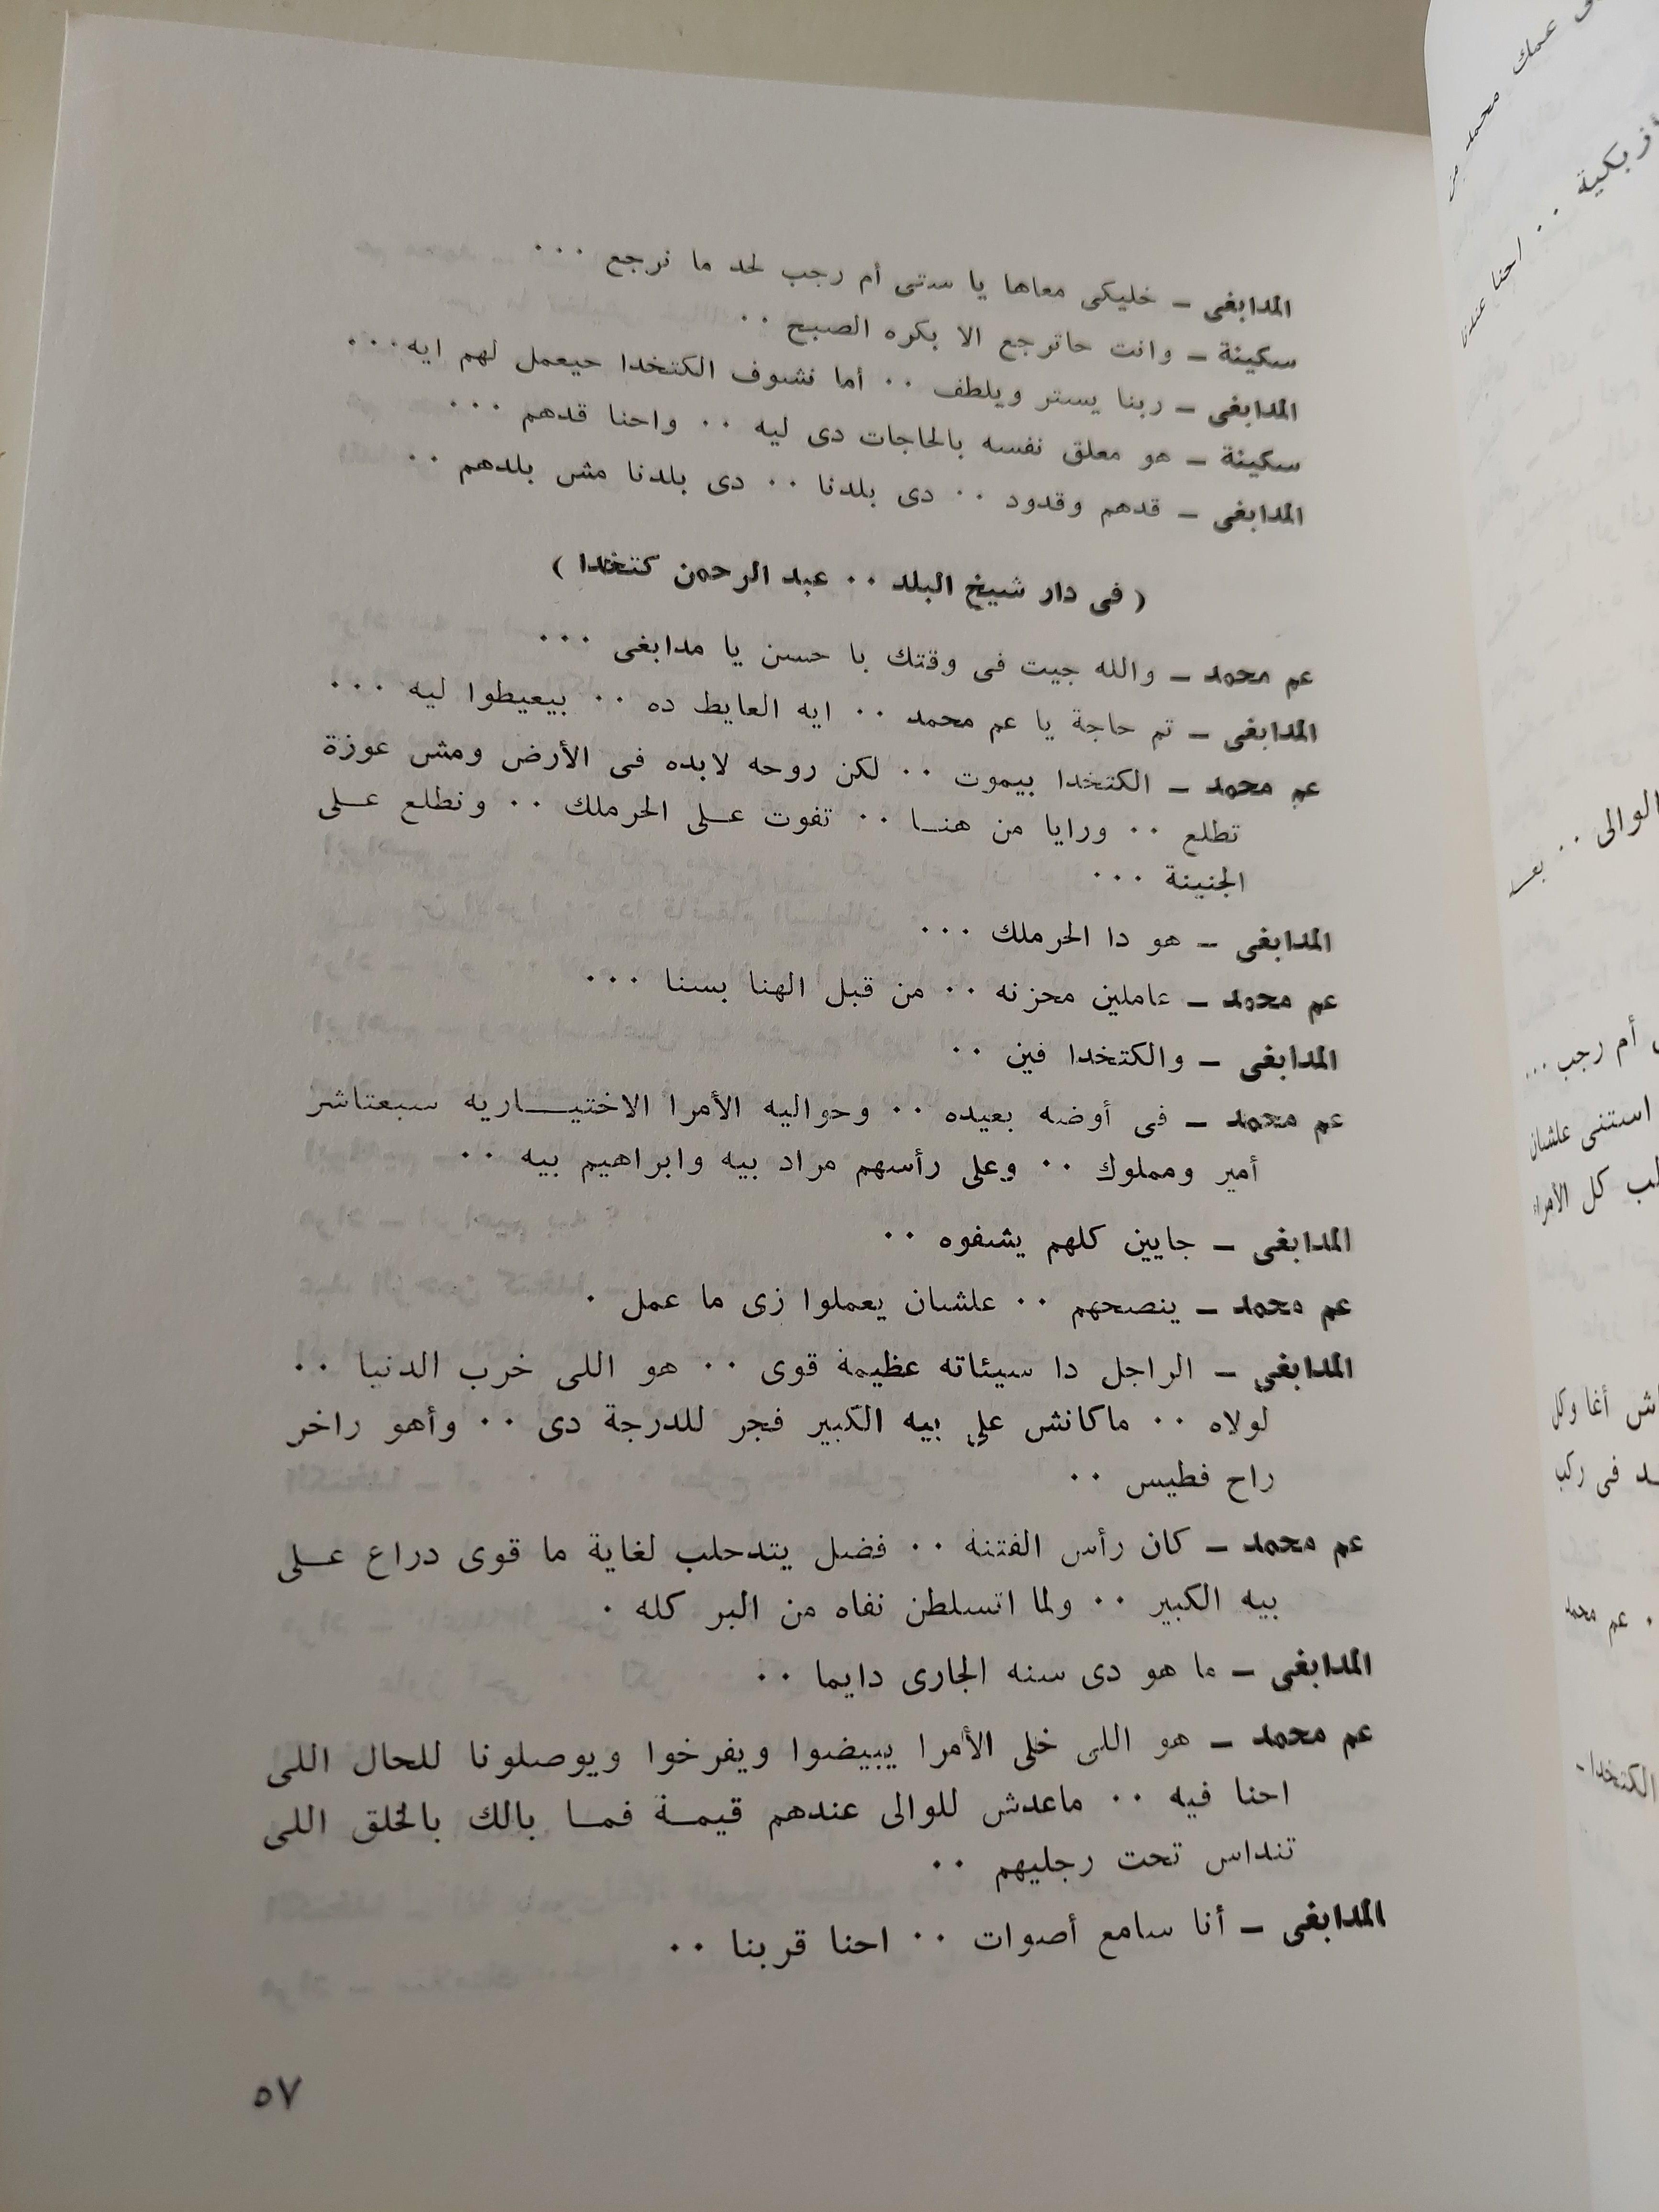 المدابغى ــ خليكى معاها يا ستى أم رجب لحد ما نرجع ٠٠٠
سكينة ــ وانت حاترجع الا بكره الصبح ٠٠
المدابغى ــ ربنا يستر ويلطف ٠٠ أما نشوف الكتخدا حيعمل لهم ايه٠٠٠
سكينة ــ هو معلق نفسه بالحاجات دى ليه ٠٠ واحنا قدهم ٠٠٠
المدابغى ــ قدهم وقدود ٠٠ دى بلدنا ٠٠ دى بلدنا مش بلدهم ٠٠
( فى دار شيخ البلد ٠٠ عبد الرحمن كتخدا )
عم محمد ــ والله جيت فى وقتك با حسن يا مدابغى ٠٠٠
المدابغى ــ تم حاجة يا عم محمد ٠٠ ايه العايط ده ٠٠ بيعيطوا ليه ٠٠٠
عم محمد ــ الكتخدا بيموت ٠٠ لكن روحه لابده فى الأرض ومش عوزة
تطلع ٠٠ ورايا من هنا ٠٠ تفوت على الحرملك ٠٠ ونطلع على
الجنينة ٠٠٠
المدابغى ــ هو دا الحرملك ٠٠٠
عم محمد ــ عاملين محزنه ٠٠ من قبل الهنا بسنا ٠٠٠
المدابغى ــ والكتخدا فين ٠٠
عم محمد ــ فى أوضه بعيده ٠٠ وحواليه الأمرا الاختياريه سبعتاشر
أمير ومملوك ٠٠ وعلى رأسهم مراد بيه وابراهيم بيه ٠٠
المدابغى ــ جايين كلهم يشفوه ٠٠
عم محمد ــ ينصحهم ٠٠ علشان يعملوا زى ما عمل ٠
المدابغى ــ الراجل دا سيئاته عظيمة قوى ٠٠ هو اللى خرب الدنيا ٠٠
لولاه ٠٠ ماكانش على بيه الكبير فجر للدرجة دى ٠٠ وأهو راخر
راح فطيس ٠٠
عم محمد ــ كان رأس الفتنة ٠٠ فضل يتدحلب لغاية ما قوى دراع على
بيه الكبير ٠٠ ولما اتسلطن نفاه من البر كله ٠
المدابغى ــ ما هو دى سنه الجارى دايما ٠٠
عم محمد ــ هو اللى خلى الأمرا يبيضوا ويفرخوا ويوصلونا للحال اللى
احنا فيه ٠٠ ماعدش للوالى عندهم قيمة فما بالك بالخلق اللى
تنداس تحت رجليهم ٠٠
المدابغى ــ أنا سامع أصوات ٠٠ احنا قربنا ٠٠
٥٧
عمك محمد
أزبكية ٠٠ احنا عندنا
الوالى ٠٠ بعد
أم رجب ٠٠٠
استنى علشان
كل الأمراء
أغا وكل
فى ركب
٠ عم محمد
الكتخدا ــ